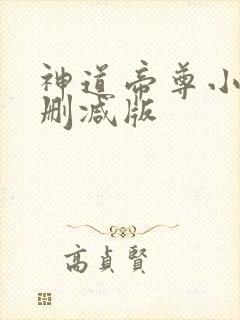 神道帝尊小
删减版
高貞賢